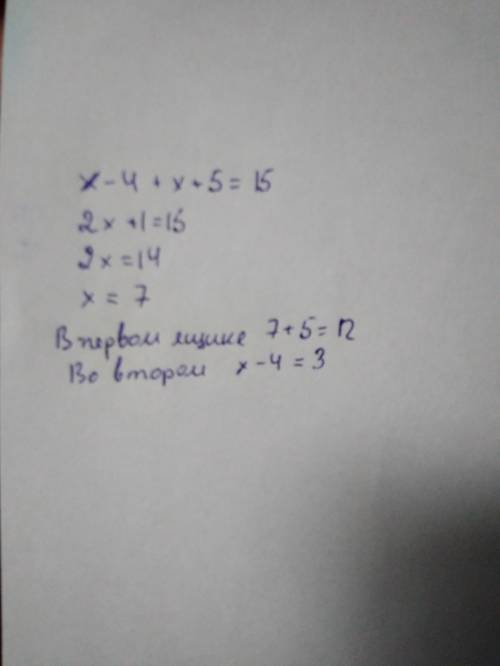 x - 4 + x + 5 = 15
2x + 1 = 15
2x = 14
x = 7
В первом ящике 7 + 5 = 12
Во втором x - 4 = 3